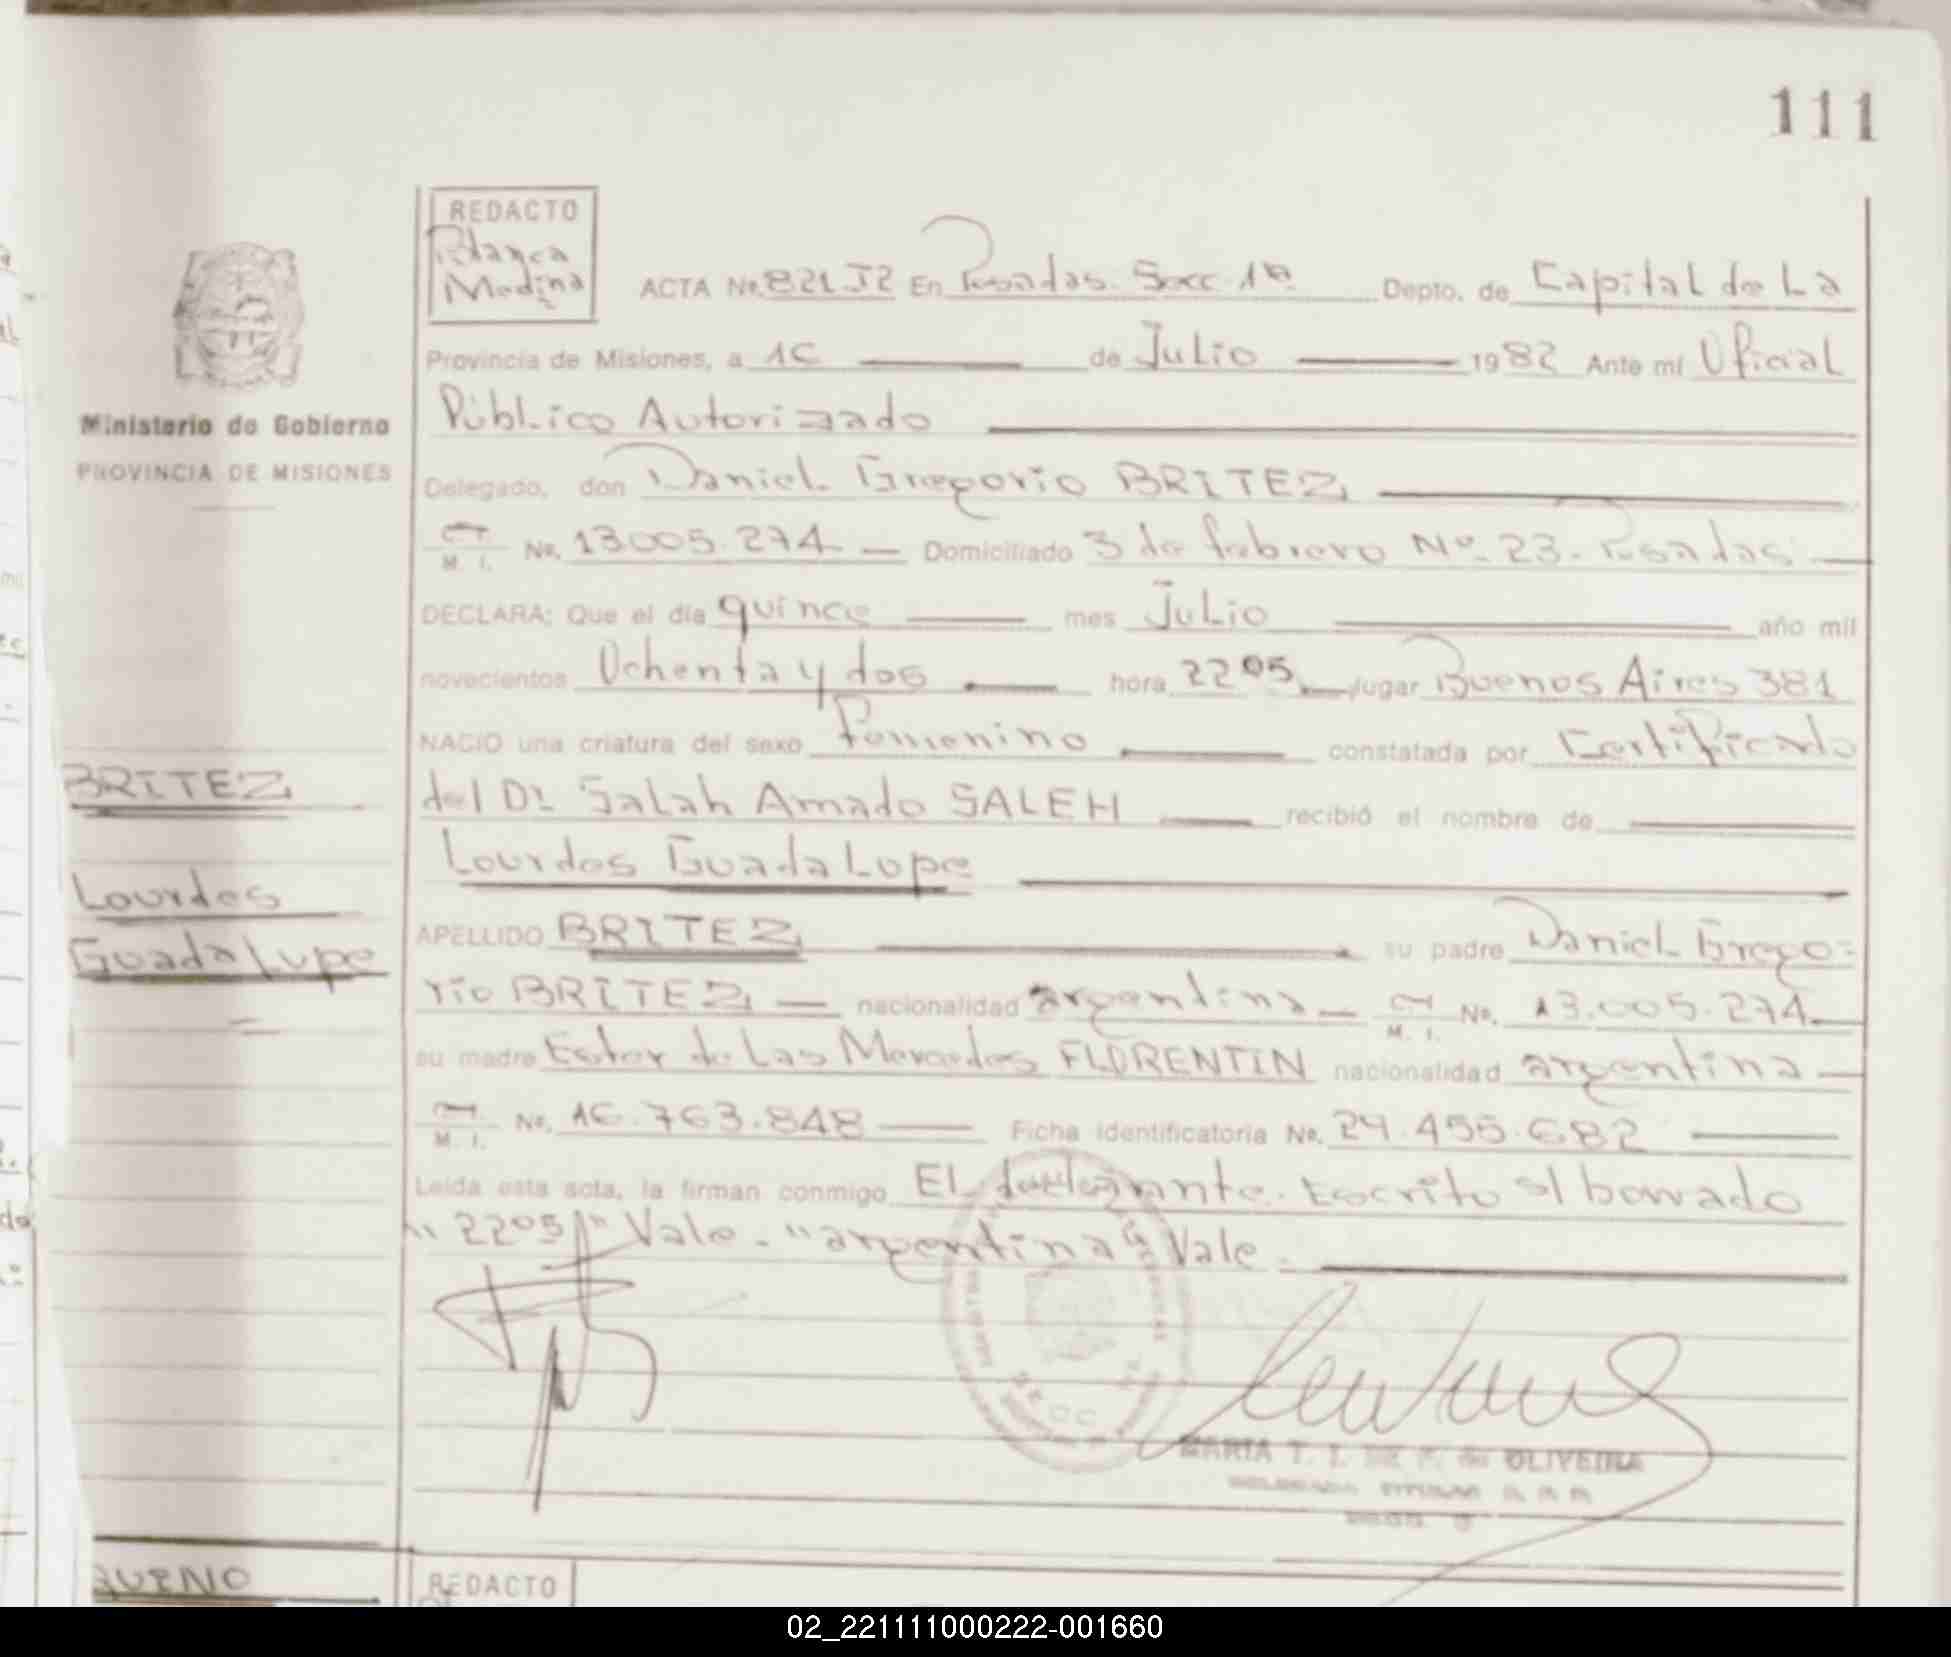 111
REDACTO
Blanca
Medina
ACTA No. 821 J2 En Posadas. Secc 1ª Depto. de Capital de La
Provincia de Misiones, a 16 de Julio 1982 Ante mí Oficial
Público Autorizado
Delegado, don Daniel Gregorio BRITEZ
M. I. No. 13.005.274 Domiciliado 3 de febrero Nº 23. Posadas
DECLARA: Que el día quince mes Julio año mil
novecientos Ochenta y dos hora 2205 lugar Buenos Aires 381
NACIO una criatura del sexo femenino constatada por Certificado
del Dr Salah Amado SALEH recibió el nombre de
Lourdes Guadalupe
APELLIDO BRITEZ su padre Daniel Grego=
rio BRITEZ nacionalidad argentina M. I. No. 13.005.274
su madre Ester de Las Mercedes FLORENTIN nacionalidad argentina
M. I. No. 16.763.848 Ficha identificatoria No. 29.455.682
Leída esta acta, la firman conmigo El declarante. Escrito s/ borrado
"2205" Vale - "argentina" Vale.
MARIA T. I. de OLIVEIRA
Ministerio de Gobierno
PROVINCIA DE MISIONES
BRITEZ
Lourdes
Guadalupe
REDACTO
02_221111000222-001660